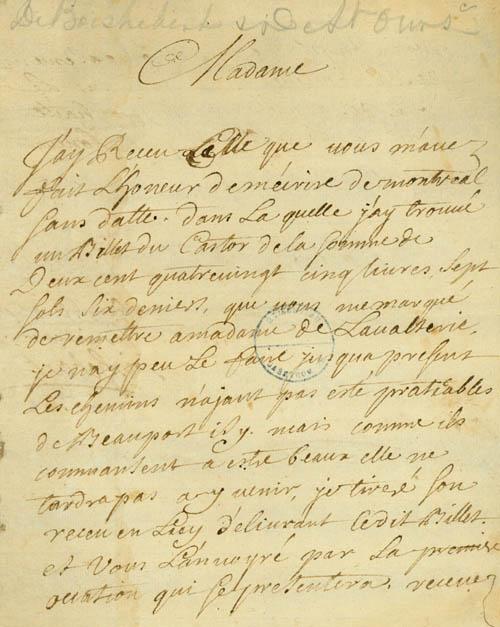 Madame
J'ay Receu Celle que vous m'ave
fait Lhoneur demécrire de montreal
sans datte. dans La quelle j'ay trouvé
un Billet du Castor de la somme de
Deux cent quatrevingt cinq livres, sept
sols six deniers, que vous me marqué
de remettre a madame de Lavaltrie.
je nay peu Le faire jusqua present
Les chemins n'ajant pas esté pratiables
de Beauport isy. mais comme ils
commantent a estre beaux elle ne
tardra pas a y venir, je tireré son
receu en Luy délivrant Cedit Billet.
et Vous Lanvoyré par La premiere
ocation qui se presentera. receve